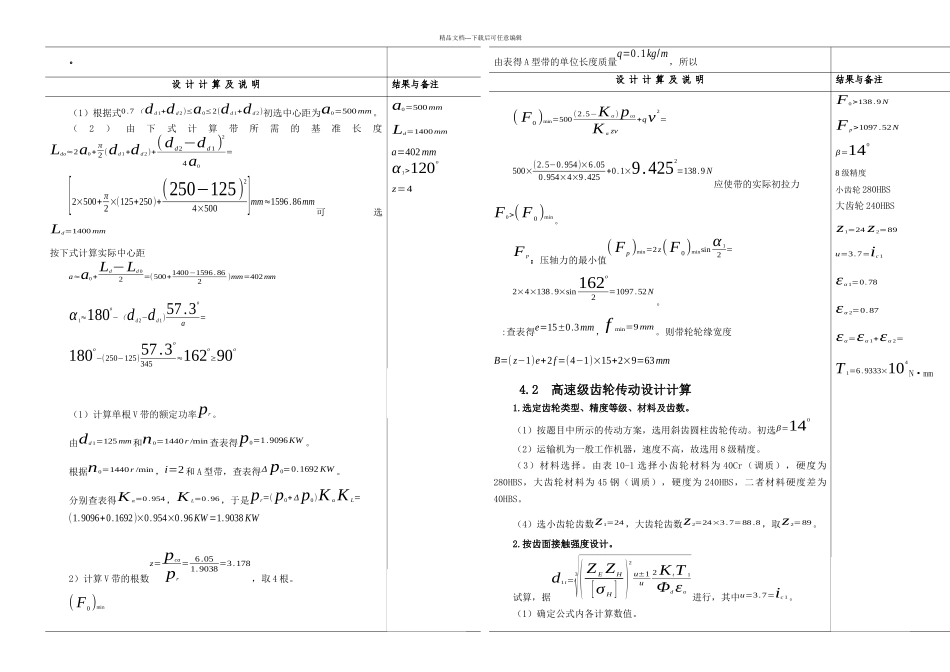 精品文档---下载后可任意编辑
。
设 计 计 算 及 说 明 结果与备注
（1）根据式0.7（d_{d1}+d_{d2})≤a_0≤2(d_{d1}+d_{d2})初选中心距为a_0=500mm。
（2）由下式计算带所需的基准长度
L_{d0}≈2a_0+π/2(d_{d1}+d_{d2})+(d_{d2}−d_{d1})^2/4a_0=
[2×500+π/2×(125+250)+(250−125)^2/4×500]mm≈1596.86mm 可选
L_d=1400mm
按下式计算实际中心距
a≈a_0+(L_d−L_{d0})/2=(500+(1400−1596.86)/2)mm=402mm
α_1≈180°−（d_{d2}−d_{d1})57.3°/a=
180°−(250−125)57.3°/345≈162°≥90°
（1）计算单根 V 带的额定功率p_r。
由d_{d1}=125mm和n_0=1440r/min查表得p_0=1.9096KW。
根据n_0=1440r/min，i=2和 A 型带，查表得Δp_0=0.1692KW。
分别查表得K_α=0.954，K_L=0.96，于是p_r=(p_0+Δp_0)K_αK_L=
(1.9096+0.1692)×0.954×0.96KW=1.9038KW
2）计算 V 带的根数 z=p_{ca}/p_r=6.05/1.9038=3.178，取 4 根。
(F_0)_{min}
a_0=500mm
L_d=1400mm
a=402mm
α_1>120°
z=4
由表得 A 型带的单位长度质量q=0.1kg/m，所以
设 计 计 算 及 说 明 结果与备注
(F_0)_{min}=500(2.5−K_α)p_{ca}/K_αzv+qv^2=
500×(2.5−0.954)×6.05/0.954×4×9.425+0.1×9.425^2=138.9N 应使带的实际初拉力
F_0>(F_0)_{min}。
F_p：压轴力的最小值(F_p)_{min}=2z(F_0)_{min}sin α_1/2=
2×4×138.9×sin 162°/2=1097.52N。
:查表得e=15±0.3mm，f_{min}=9mm。则带轮轮缘宽度
B=(z−1)e+2f=(4−1)×15+2×9=63mm
4.2 高速级齿轮传动设计计算
1.选定齿轮类型、精度等级、材料及齿数。
（1）按题目中所示的传动方案，选用斜齿圆柱齿轮传动。初选β=14°
（2）运输机为一般工作机器，速度不高，故选用 8 级精度。
（3）材料选择。由表 10-1 选择小齿轮材料为 40Cr（调质），硬度为
280HBS，大齿轮材料为 45 钢（调质），硬度为 240HBS，二者材料硬度差为
40HBS。
（4）选小齿轮齿数Z_1=24，大齿轮齿数Z_2=24×3.7=88.8，取Z_2=89。
2.按齿面接触强度设计。
试算，据d_{1t}=∛((Z_EZ_H/[σ_H])^2 u±1/u 2K_tT_1/Φ_dε_α)进行，其中u=3.7=i_{c1}。
（1）确定公式内各计算数值。
F_0>138.9N
F_p>1097.52N
β=14°
8 级精度
小齿轮 280HBS
大齿轮 240HBS
Z_1=24 Z_2=89
u=3.7=i_{c1}
ε_{α1}=0.78
ε_{α2}=0.87
ε_α=ε_{α1}+ε_{α2}=
T_1=6.9333×10^4 N·mm